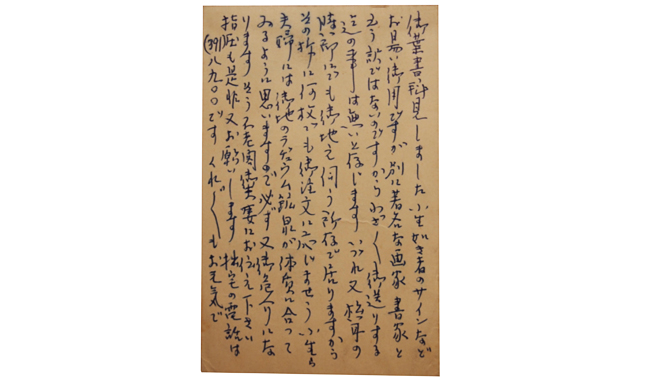 御葉書拝見しました 小生如き者のサインなど
お易い御用ですが 別に著名な画家 書家と
云う訳ではないのですからわざ〳〵御送りする
迄の事は無いと存じます いづれ又 の
時にでも御地え伺う所存で居りますから
その折に何枚でも御注文に応じませう 小生ら
夫婦には御地のラヂウム鉱泉が体質に合って
みるように思いますので必ず又御色入りにな
ります そう 御夫妻にお伝え下さい
指圧も是非又お願いします 拙宅の電話は
(391)八九〇〇です くれ〴〵もお元気で